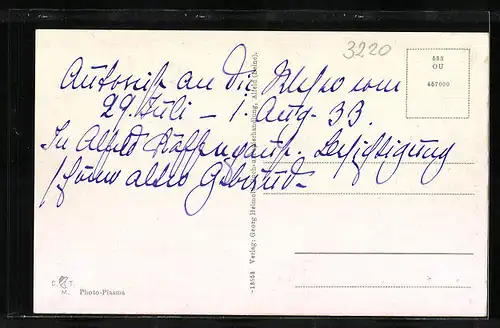 3220
593
OU
457000
Autoreise an die Weser vom
29. Juli – 1. Aug. 33.
In Alfeld Kaffeepause. Besichtigung
schöner alter Gebäude
-18558 Verlag: Georg Buchhandlung, Alfeld (Leine).
C. T.
M. Photo-Plasma